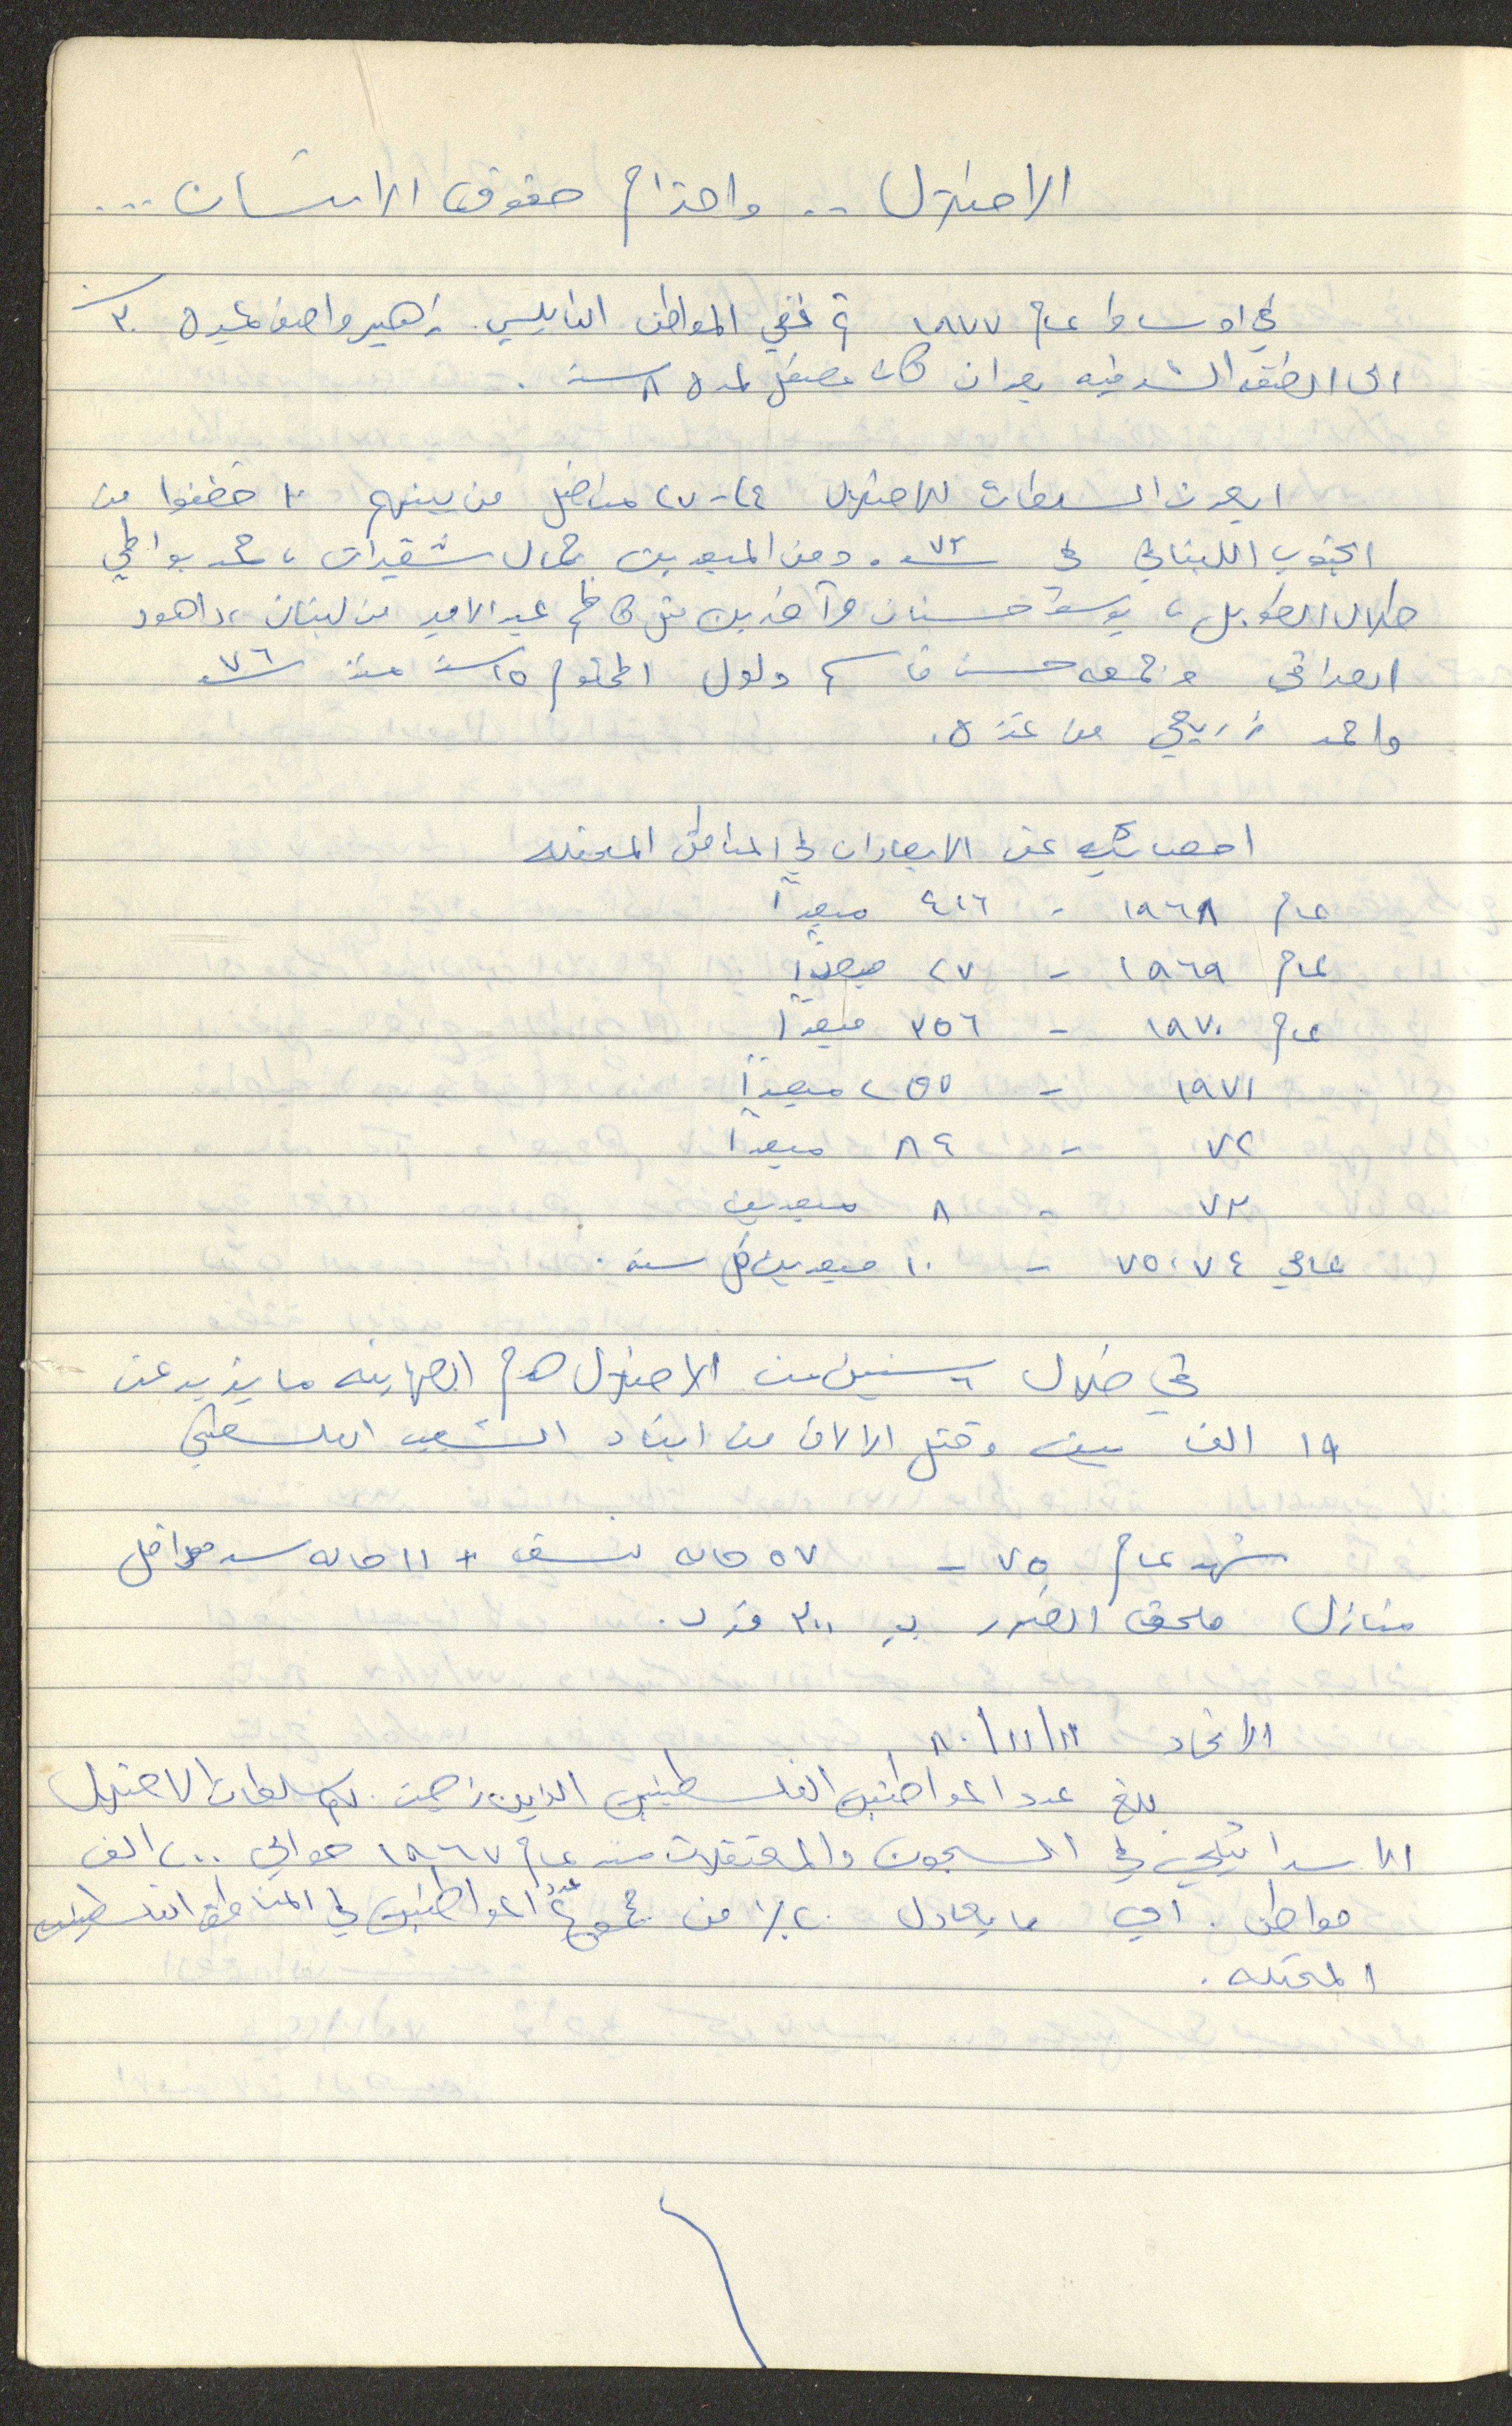 الاحتلال .. واحترام حقوق الانسان ...
في اوساط عام ١٩٧٧ تم نفي المواطن النابلسي زهير واصف عميره ٣٠ سنه
الى الضفه الشرقيه بعد ان كان معتقل لمدة ٨ سنه .
ابعدت السلطات للاحتلال ٢٤-٢٧ مناضل من بينهم ١٠ خطفوا من
الجنوب اللبناني في سنه ٧٣ . ومن المبعدين جمال شقيرات ، محمد بواطي
طلال الطويل ، يوسف حسنان وآخرين مثل كاظم عبد الامير من لبنان ، داهود
العراقي و جمعه حسن قاسم ولول المحكوم ١٥ سنه منذ سنه ٧٦
واحمد زريعي من غزة .
احصائيه عن الابعادات في المناطق المحتله
عام ١٩٦٨ - ٤١٦ مبعداً
عام ١٩٦٩ - ٢٧ مبعداً
عام ١٩٧٠ - ٣٥٦ مبعداً
١٩٧١ - ٢٥٥ مبعداً
٧٢ - ٨٤ مبعداً
٧٣ - ٨ مبعدين
عامي ٧٤ ، ٧٥ - ١٠ مبعدين كل سنه .
في خلال ٦ سنين من الاحتلال هدم الصهاينه ما يزيد عن
١٩ الف بيت وقتل الالاف من ابناء الشعب الفلسطيني
شهد عام ٧٥ - ٥٧ حاله نسف + ١١ حاله سد مداخل
منازل ملحق الضرر بـ ٣٠٠ فرد .
الاتحاد ١١/١١/٨٠
بلغ عدد المواطنين الفلسطينيين الذين زجت بهم سلطات الاحتلال
الاسرائيلي في السجون والمعتقلات منذ عام ١٩٦٧ حوالي ٢٠٠ الف
مواطن . اي ما يعادل ٢٠٪ من مجموع عدد المواطنين في المناطق الفلسطينيه
المحتله .